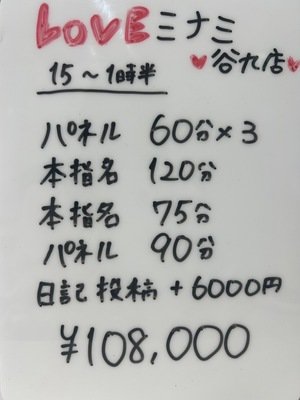 LOVEミナミ
♥谷九店♥
15～1時半
パネル 60分×3
本指名 120分
本指名 75分
パネル 90分
日記投稿 +6000円
¥108,000